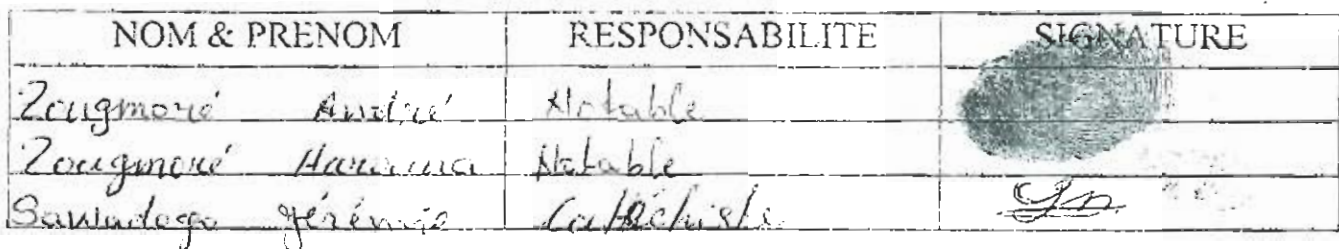 NOM & PRENOM RESPONSABILITE SIGNATURE
Zougmoré André Notable
Zougmoré Harouna Notable
Sawadogo Jérémie Catéchiste